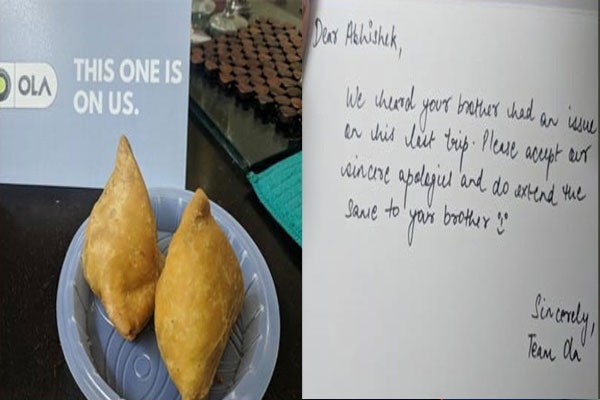 OLA
THIS ONE IS
ON US.
Dear Abhishek,
We heard your brother had an issue
on his last trip. Please accept our
sincere apologies and do extend the
same to your brother :)
Sincerely,
Team Ola